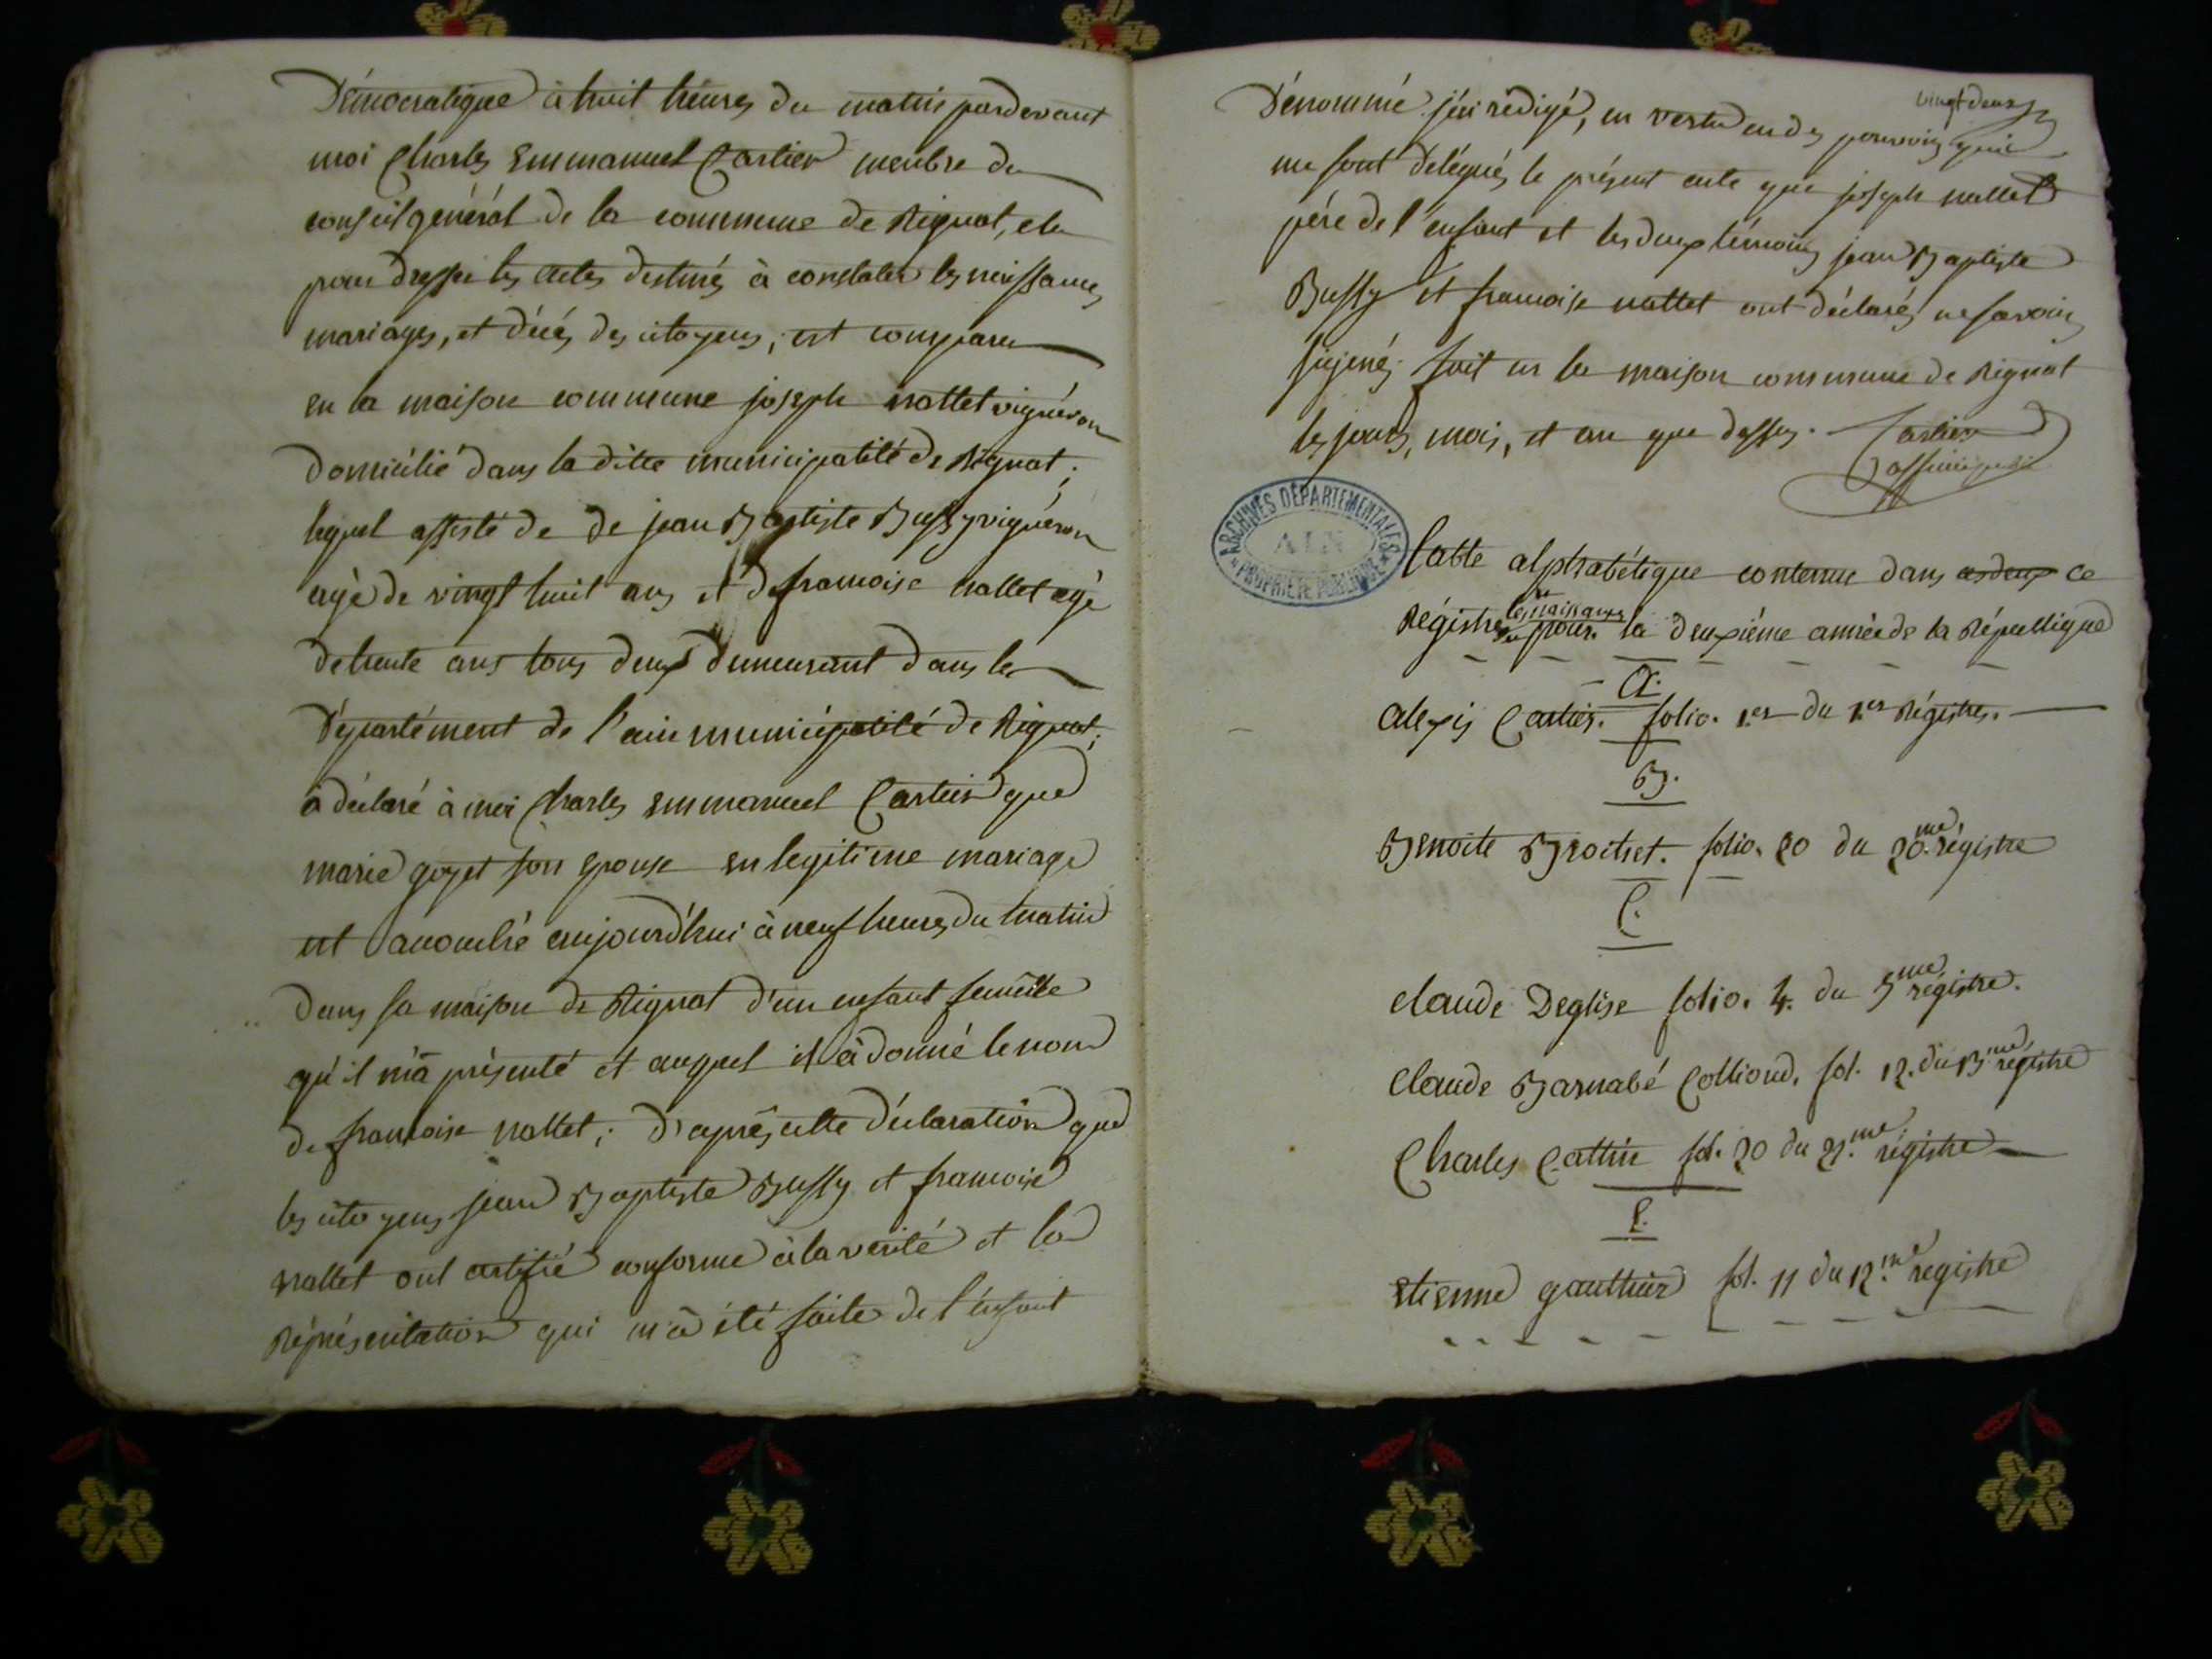 Démocratique à huit heures du matin pardevant
moi Charles Emmanuel Cartier membre du
conseil général de la commune de Rignat, elu
pour dresser les actes destinés à constater les naissances,
mariages, et décés des citoyens, est comparu
en la maison commune joseph nallet vignéron
domicilié dans la ditte municipalité de Rignat;
lequel assisté de de jean Baptiste Bussy vignéron
agé de vingt huit ans et de francoise nallet agé
de trente ans tous deux demeurant dans le
Département de l'ain municipalité de Rignat;
à déclaré à moi Charles Emmanuel Cartier que
marie goyet son epouse en legitime mariage
est accouché aujourd'hui à neuf heures du matin
dans sa maison de Rignat d'un enfant femelle
qu'il m'a présenté et auquel il à donné le nom
de francoise nallet; d'aprés cette déclaration que
les citoyens jean Baptiste Bussy et francoise
nallet ont certifié conforme à la verité et la
Réprésentation qui m'a été faite de l'enfant
vingt deux
Dénommé j'ai rédigé, en vertu des pouvoirs qui
me sont délégués le présent acte que joseph nallet
pére de l'enfant et les deux témoins jean Baptiste
Bussy et francoise nallet ont déclarés ne savoir
signé; fait en la maison commune de Rignat
les jours, mois, et an que dessus. Cartier
officier public
ARCHIVES DÉPARTEMENTALES
AIN
PROPRIÉTÉ PUBLIQUE
table alphabétique contenue dans ces deux ce
les naissances
Régistre pour la deuxiéme année de la République
A.
alexis Cartier. folio. 1.er du 1.er Régistre.
B.
Benoite Brochet. folio. 20 du 20.me régistre
C.
claude Deglise folio. 4. du 5me régistre.
Claude Barnabé Colliond. fol. 12. du 13.me registre
Charles Cattin fol. 20 du 21.me régistre
E.
Etienne gauthier fol. 11 du 12.me registre